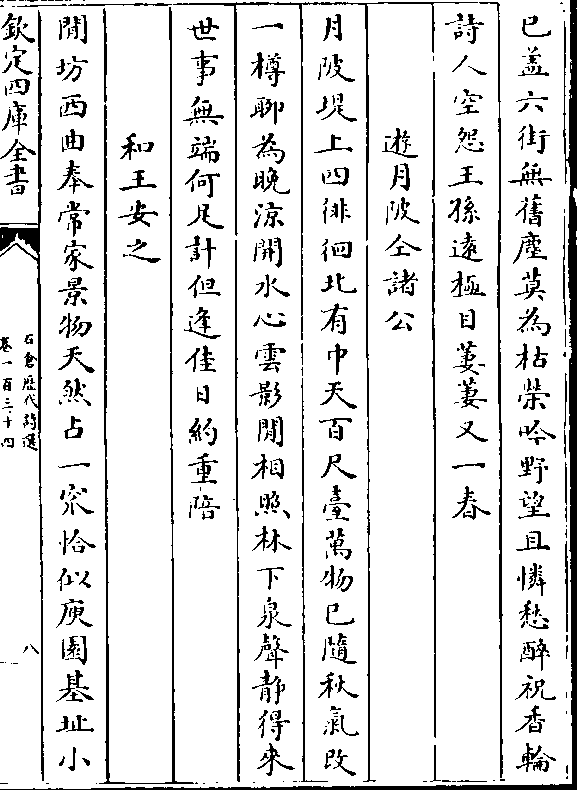 已蓋六街無舊塵莫為枯榮吟野望且憐愁醉祝香輪
詩人空怨王孫遠極目萋萋又一春
遊月陂仝諸公
月陂堤上四徘徊北有中天百尺臺萬物已隨秋氣改
一樽聊為晚涼開水心雲影閒相照林下泉聲靜得來
世事無端何足計但逢佳日約重陪
和王安之
閒坊西曲奉常家景物天然占一窊恰似庾園基址小
欽定四庫全書
石倉歷代詩選
卷一百三十四
八